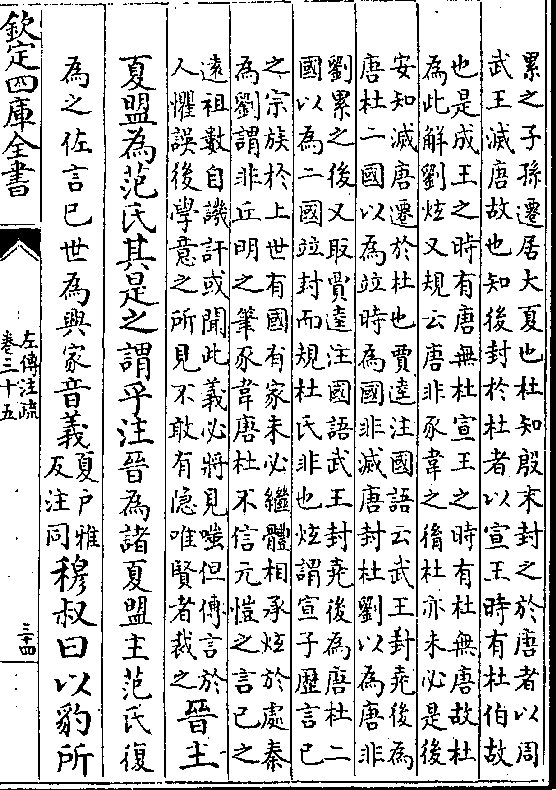 累之子孫遷居大夏也杜知殷末封之於唐者以周
武王滅唐故也知後封於杜者以宣王時有杜伯故
也是成王之時有唐無杜宣王之時有杜無唐故杜
為此解劉炫又規云唐非豕韋之胤杜亦未必是後
安知滅唐遷於杜也賈逵注國語云武王封堯後為
唐杜二國以為竝時為國非滅唐封杜劉以為唐非
劉累之後又取賈逵注國語武王封堯後為唐杜二
國以為二國竝封而規杜氏非也炫謂宣子歷言已
之宗族於上世有國有家未必繼體相承炫於處秦
為劉謂非丘明之筆豕韋唐杜不信元愷之言已之
遠祖數自譏訐或聞此義必將見嗤但傳言於
人懼誤後學意之所見不敢有隱唯賢者裁之
晉主
夏盟為范氏其是之謂乎注晉為諸夏盟主范氏復
為之佐言已世為興家音義
夏戶雅
反注同
穆叔曰以豹所
欽定四庫全書
左傳注疏
卷三十五
三十四